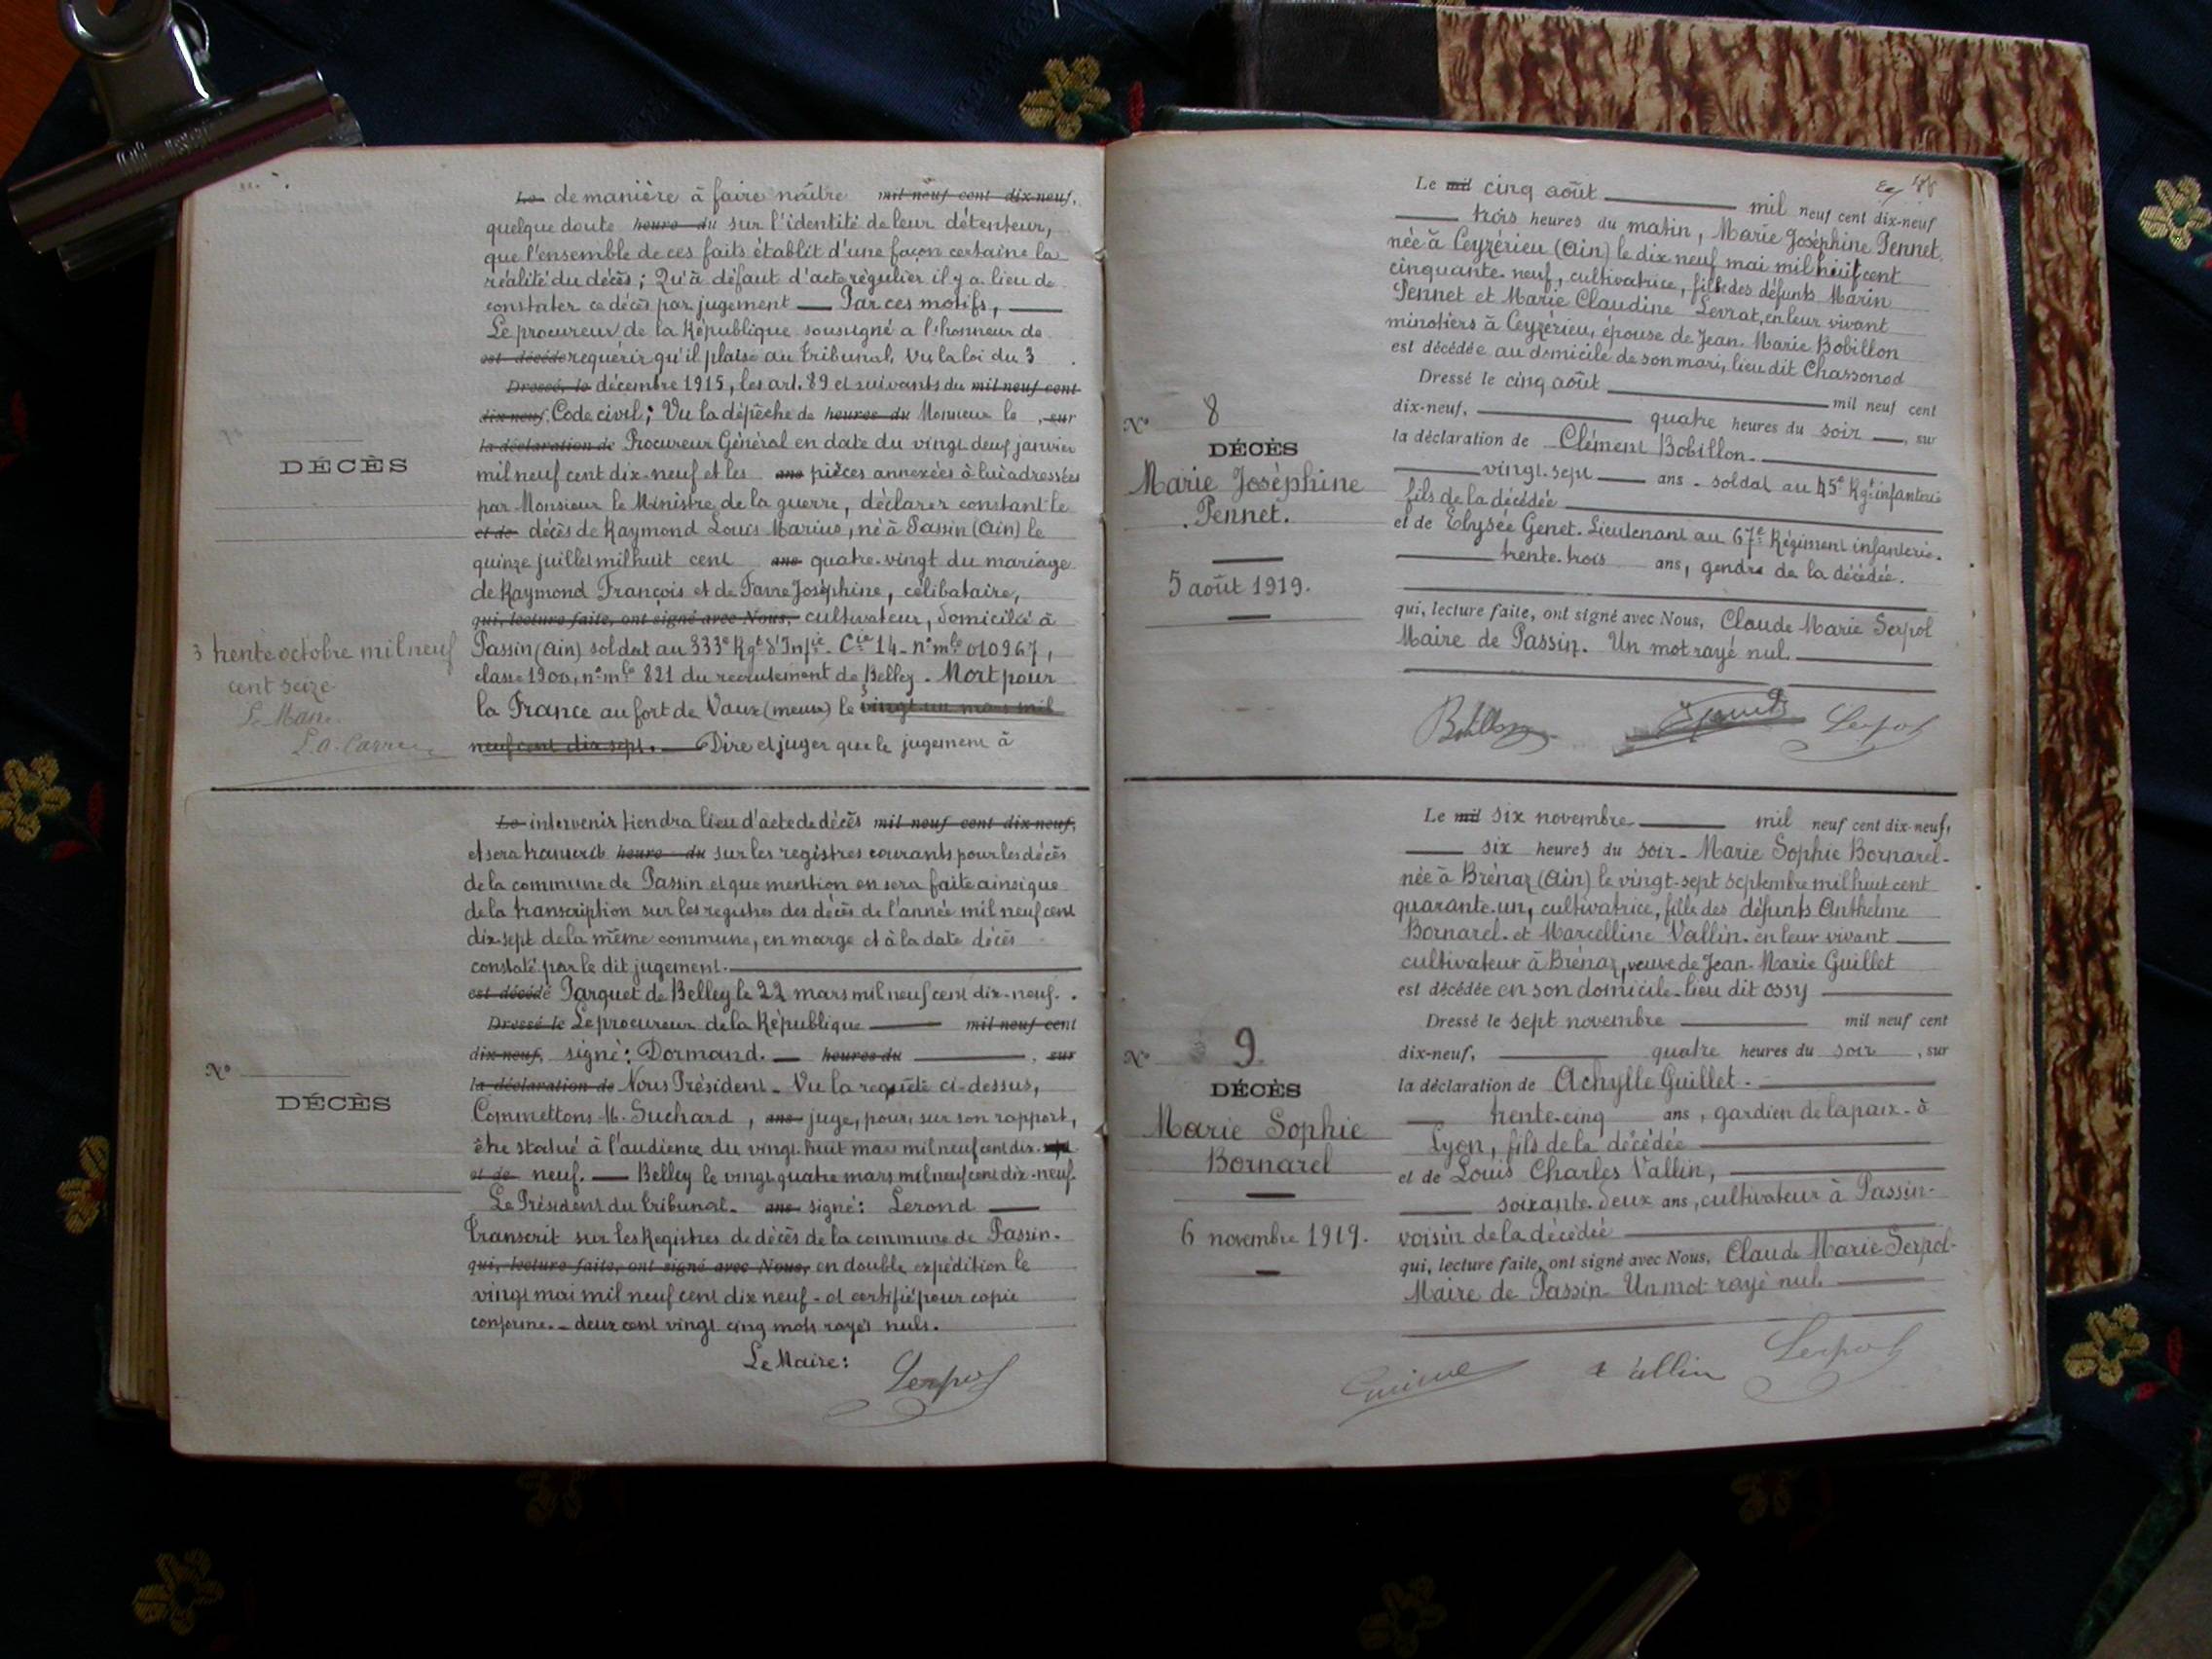 Le de manière à faire naître mil neuf cent dix-neuf,
quelque doute heure du sur l'identité de leur détenteur,
que l'ensemble de ces faits établit d'une façon certaine la
réalité du décès ; Qu'à défaut d'acte régulier il y a lieu de
constater ce décès par jugement — Par ces motifs, —
Le procureur de la République soussigné a l'honneur de
est décédé requérir qu'il plaise au tribunal, Vu la loi du 3
Dressé le décembre 1915, les art. 89 et suivants du mil neuf cent
dix-neuf, Code civil ; Vu la dépêche de heures du Monsieur le , sur
la déclaration de Procureur Général en date du vingt deux janvier
DÉCÈS
mil neuf cent dix-neuf et les ans pièces annexées à lui adressées
par Monsieur le Ministre de la guerre, déclarer constant le
et de décès de Raymond Louis Marius, né à Passin (Ain) le
quinze juillet mil huit cent ans quatre-vingt du mariage
de Raymond François et de Favre Joséphine, célibataire,
qui, lecture faite, ont signé avec Nous, cultivateur, domicilié à
3 trente octobre mil neuf
cent seize
Le Maire
Passin (Ain) soldat au 333e Rgt d'Infie - Cie 14 - n° mle 010967,
classe 1900, n° mle 821 du recrutement de Belley - Mort pour
la France au fort de Vaux (meuse) le vingt un mars mil
neuf cent dix sept. — Dire et juger que le jugement à
Le intervenir tiendra lieu d'acte de décès mil neuf cent dix-neuf,
et sera transcrit heure du sur les registres courants pour les décès
de la commune de Passin et que mention en sera faite ainsi que
de la transcription sur les registres des décès de l'année mil neuf cent
dix-sept de la même commune, en marge et à la date décès
constaté par le dit jugement.
est décédé Parquet de Belley le 22 mars mil neuf cent dix-neuf.
Dressé le Le procureur de la République — mil neuf cent
dix-neuf, signé : Dormand. — heures du , sur
N°
DÉCÈS
la déclaration de Nous Président - Vu la requête ci-dessus,
Commettons M. Suchard, ans juge, pour, sur son rapport,
être statué à l'audience du vingt huit mars mil neuf cent dix-sept
et de neuf. — Belley le vingt quatre mars mil neuf cent dix-neuf.
Le Président du tribunal. ans signé : Lerond —
Transcrit sur les Registres de décès de la commune de Passin.
qui, lecture faite, ont signé avec Nous, en double expédition le
vingt mai mil neuf cent dix neuf - et certifié pour copie
conforme. - deux cent vingt cinq mots rayés nuls.
Le Maire :
Serpol
Le mil cinq août — mil neuf cent dix-neuf
— trois heures du matin, Marie Joséphine Pennet,
née à Ceyzérieu (Ain) le dix neuf mai mil huit cent
cinquante-neuf, cultivatrice, fille des défunts Marin
Pennet et Marie Claudine Levrat, en leur vivant
minotiers à Ceyzérieu, épouse de Jean-Marie Bobillon
est décédée au domicile de son mari, lieu dit Chassonod
Dressé le cinq août — mil neuf cent
N° 8
DÉCÈS
Marie Joséphine
Pennet.
5 août 1919.
dix-neuf, — quatre heures du soir —, sur
la déclaration de Clément Bobillon.
— vingt-sept — ans - soldat au 45e Rgt infanterie
fils de la décédée —
et de Elysée Genet. Lieutenant au 67e Régiment infanterie.
— trente-trois ans, gendre de la décédée.
qui, lecture faite, ont signé avec Nous, Claude Marie Serpol
Maire de Passin. Un mot rayé nul.
Bobillon Serpol
Le mil six novembre — mil neuf cent dix-neuf,
— six heures du soir - Marie Sophie Bornarel -
née à Brénaz (Ain) le vingt-sept septembre mil huit cent
quarante-un, cultivatrice, fille des défunts Anthelme
Bornarel - et Marcelline Vallin - en leur vivant —
cultivateur à Brénaz, veuve de Jean-Marie Guillet
est décédée en son domicile - lieu dit ossy —
Dressé le sept novembre — mil neuf cent
N° 9
DÉCÈS
Marie Sophie
Bornarel
6 novembre 1919.
dix-neuf, — quatre heures du soir , sur
la déclaration de Achylle Guillet -
— trente-cinq ans, gardien de la paix - à
Lyon, fils de la décédée —
et de Louis Charles Vallin, —
— soixante-deux ans, cultivateur à Passin -
voisin de la décédée —
qui, lecture faite, ont signé avec Nous, Claude Marie Serpol -
Maire de Passin - Un mot rayé nul. —
Vallin Serpol